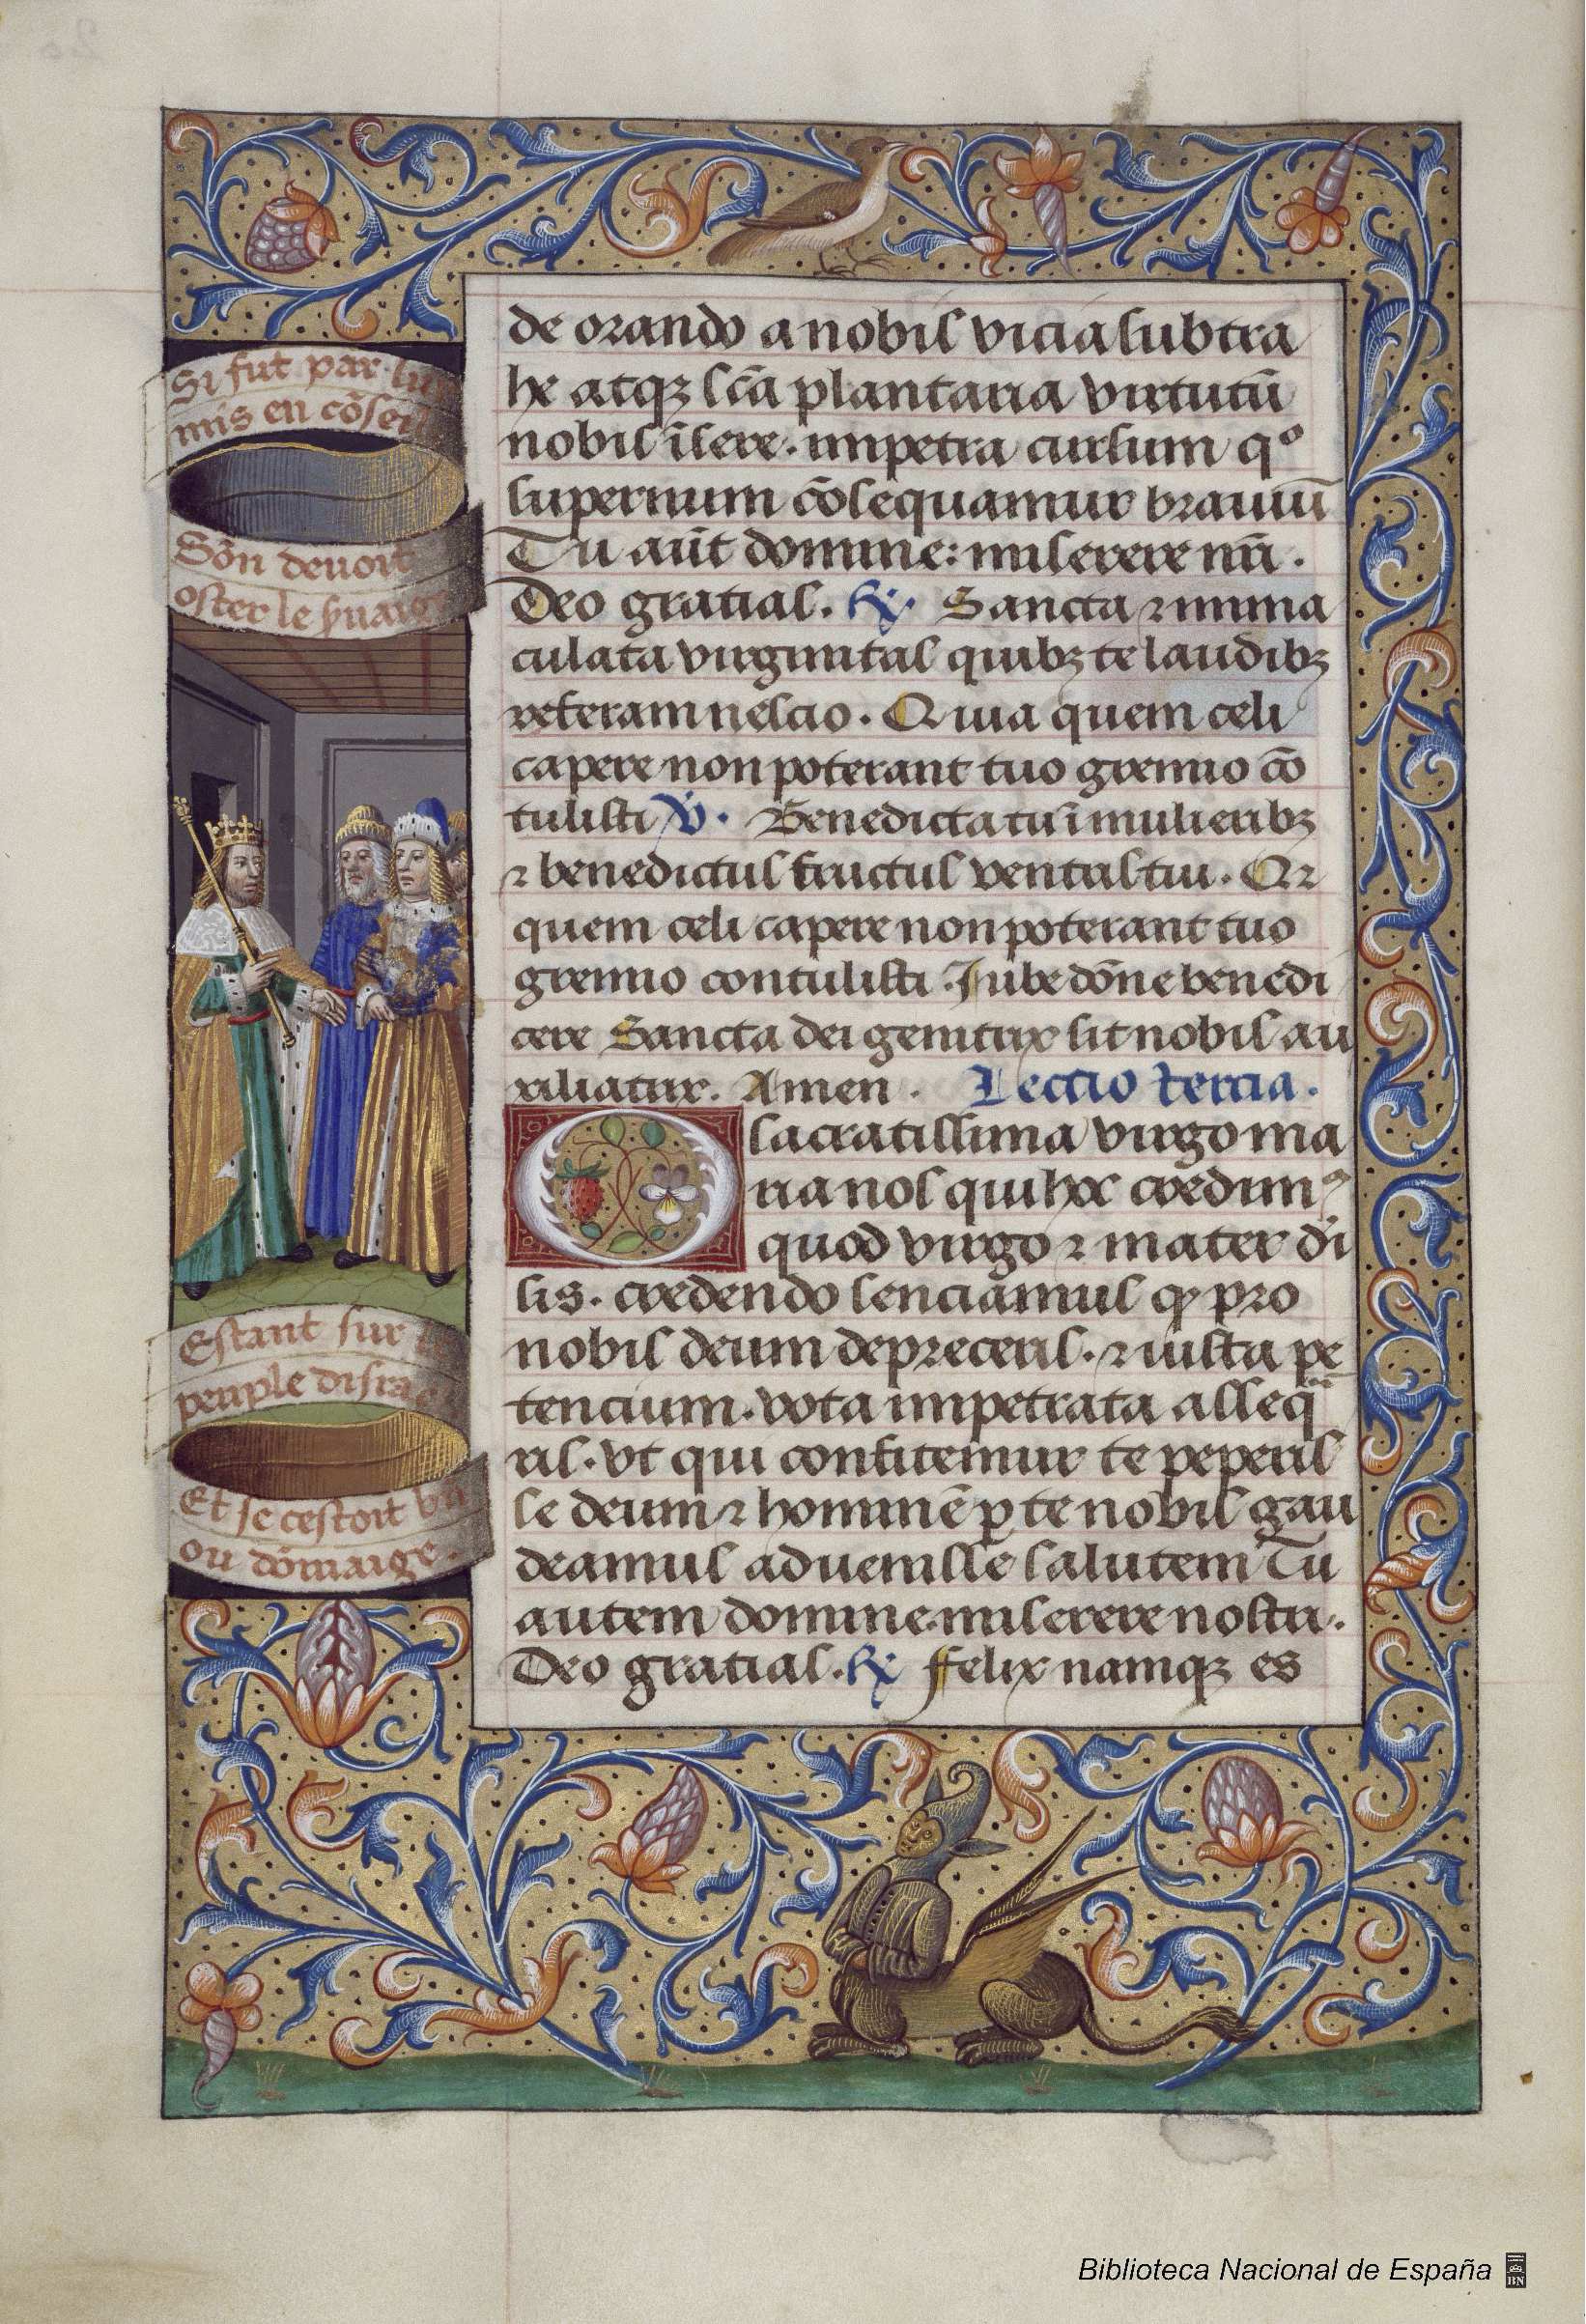 Si fut par lui
mis en cōseil
Sōn deuoit
oster le seruaige
Estant sur le
peuple disrael
Et se cestoit bn
ou dōmaige.
de orando a nobis vicia subtra
he atqꝫ sc̄a plantaria virtutū
nobis īsere. impetra cursum qͦ
supernum cōsequamur brauiū
Tu aūt domine: miserere nr̄i.
Deo gratias. ℟. Sancta ⁊ imma
culata virginitas quibꝫ te laudibꝫ
referam nescio. Quia quem celi
capere non poterant tuo gremio cō
tulisti ℣. Benedicta tu ī mulieribꝫ
⁊ benedictus fructus ventris tui. Qꝛ
quem celi capere non poterant tuo
gremio contulisti. Iube dōne benedi
cere Sancta dei genitrix sit nobis au
xiliatrix. Amen. Lectio tercia.
O sacratissima virgo ma
ria nos qui hoc credimꝰ
quod virgo ⁊ mater di
lis. credendo senciamus ꝙ pro
nobis deum depreceris. ⁊ iusta pe
tencium. vota impetrata asseq̄
ris. vt qui confitemur te peperis
se deum ⁊ hominē ꝑ te nobis gau
deamus aduenisse salutem Tu
autem domine. miserere nostri.
Deo gratias. ℟ Felix namqꝫ es
Biblioteca Nacional de España
BN